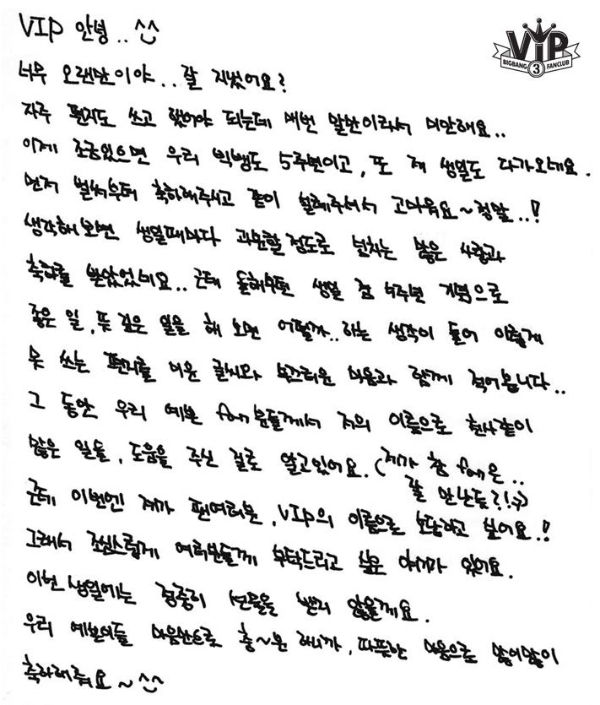 VIP 안녕.. ^^
ViP
BIGBANG 3 FANCLUB
너무 오랜만이야.. 잘 지냈어요?
자주 편지도 쓰고 했어야 되는데 매번 말뿐이라서 미안해요..
이제 조금있으면 우리 빅뱅도 5주년이고, 또 제 생일도 다가오네요.
먼저 벌써부터 축하해주시고 같이 설레주셔서 고마워요~ 정말..!
생각해보면 생일때마다 과분할정도로 넘치는 많은 사랑과
축하를 받았었네요.. 근데 올해부턴 생일 겸 5주년 기념으로
좋은 일, 뜻 깊은 일을 해 보면 어떨까.. 하는 생각이 들어 이렇게
못 쓰는 편지를 미운 글씨와 부끄러운 마음과 함께 적어봅니다..
그 동안 우리 예쁜 fan분들께서 저의 이름으로 천사같이
많은 일들, 도움을 주신 걸로 알고있어요. (제가 참 fan은..
잘 만난듯?! :))
근데 이번엔 제가 팬여러분, VIP의 이름으로 보답하고 싶어요.!
그래서 조심스럽게 여러분들께 부탁드리고 싶은 얘기가 있어요.
이번 생일에는 정중히 선물을 받지 않을게요.
우리 예쁜이들 마음만으로 충~분 하니까, 따뜻한 마음으로 많이많이
축하해줘요~ ^^